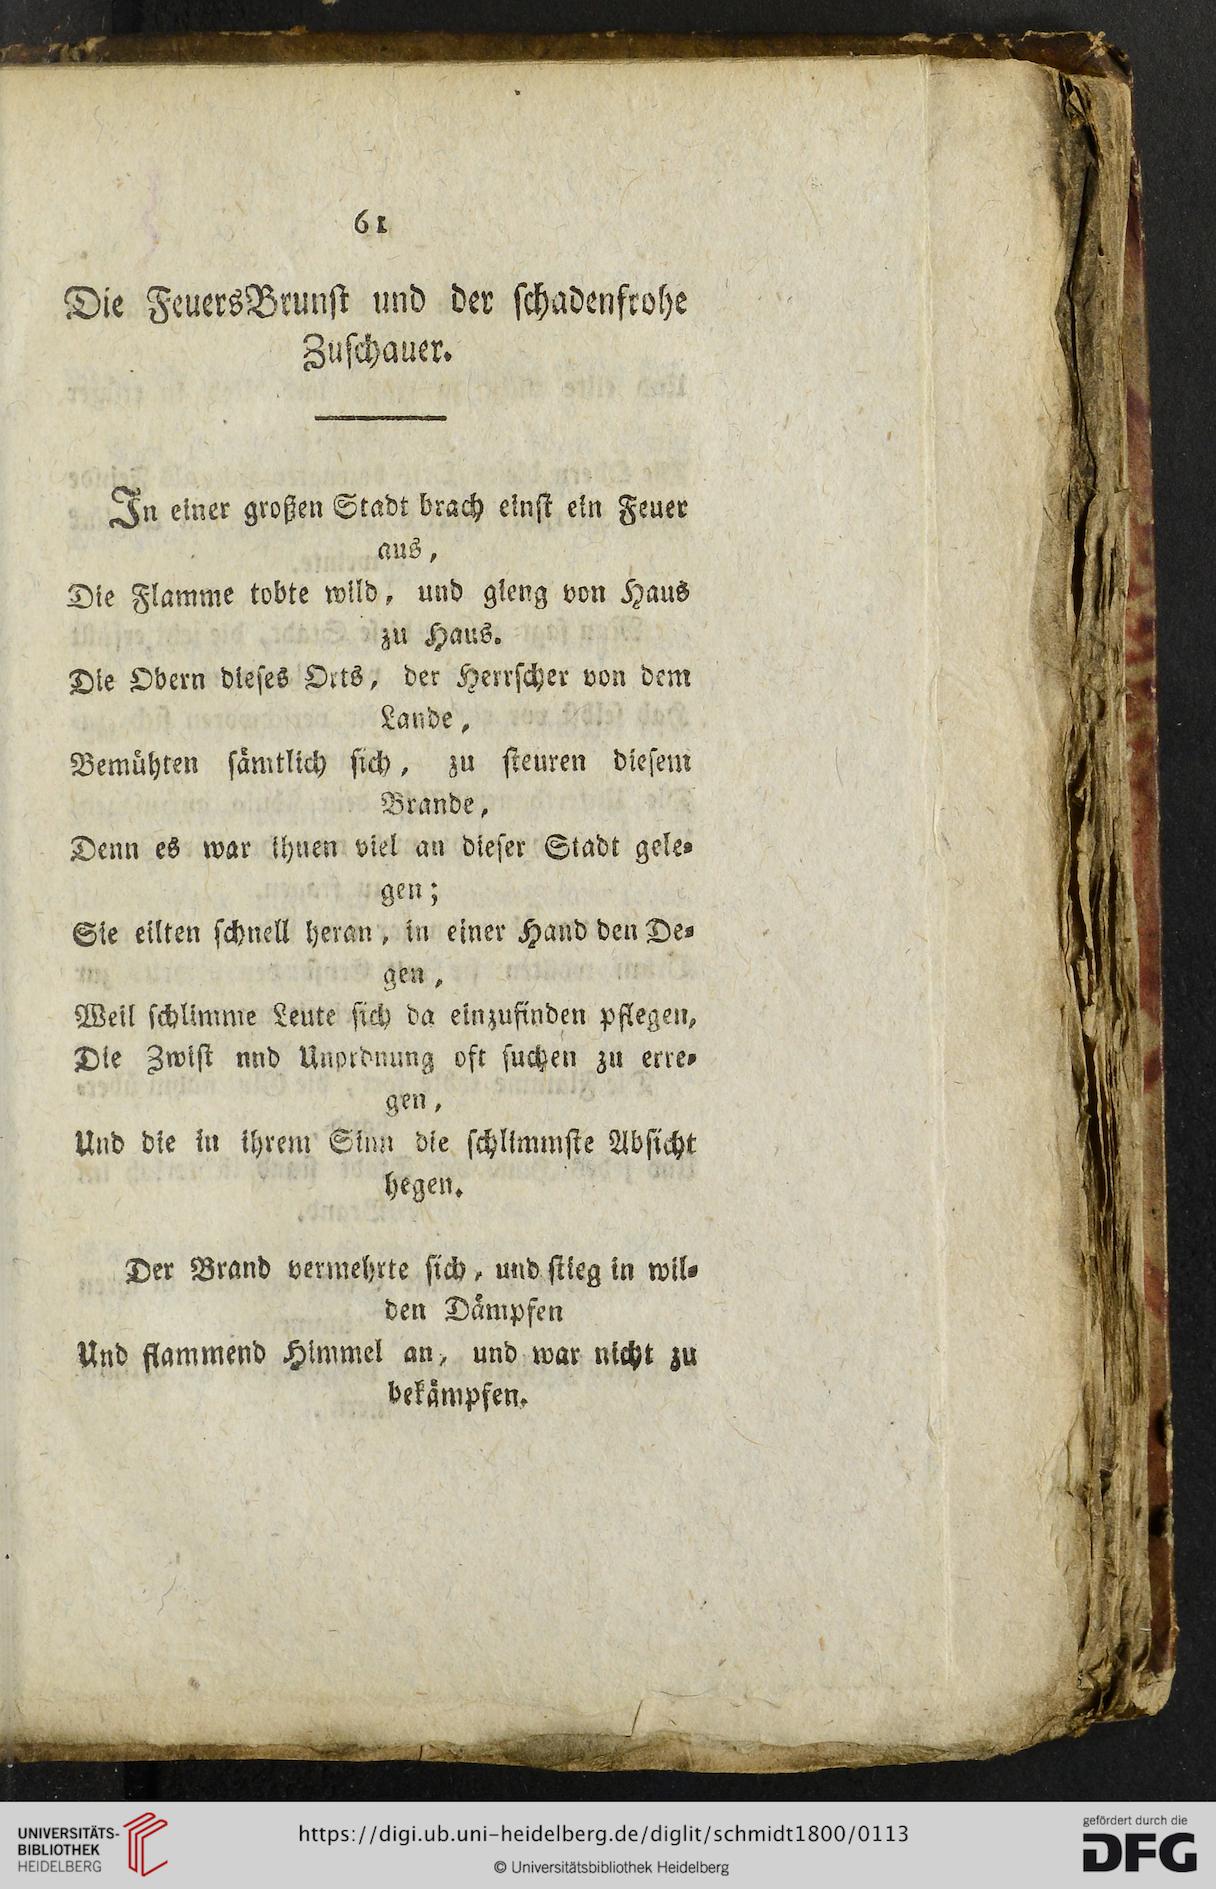 61
Die FeuersBrunst und der schadenfrohe
Zuschauer.
In einer großen Stadt brach einst ein Feuer
aus,
Die Flamme tobte wild, und gieng von Haus
zu Haus.
Die Obern dieses Orts, der Herrscher von dem
Lande,
Bemühten sämtlich sich, zu steuren diesem
Brande,
Denn es war ihnen viel an dieser Stadt gele-
gen;
Sie eilten schnell heran, in einer Hand den De-
gen,
Weil schlimme Leute sich da einzufinden pflegen,
Die Zwist nnd Unordnung oft suchen zu erre-
gen,
Und die in ihrem Sinn die schlimmste Absicht
hegen.
Der Brand vermehrte sich, und stieg in wil-
den Dämpfen
Und flammend Himmel an, und war nicht zu
bekämpfen.
UNIVERSITÄTS-
BIBLIOTHEK
HEIDELBERG
https://digi.ub.uni-heidelberg.de/diglit/schmidt1800/0113
© Universitätsbibliothek Heidelberg
gefördert durch die
DFG